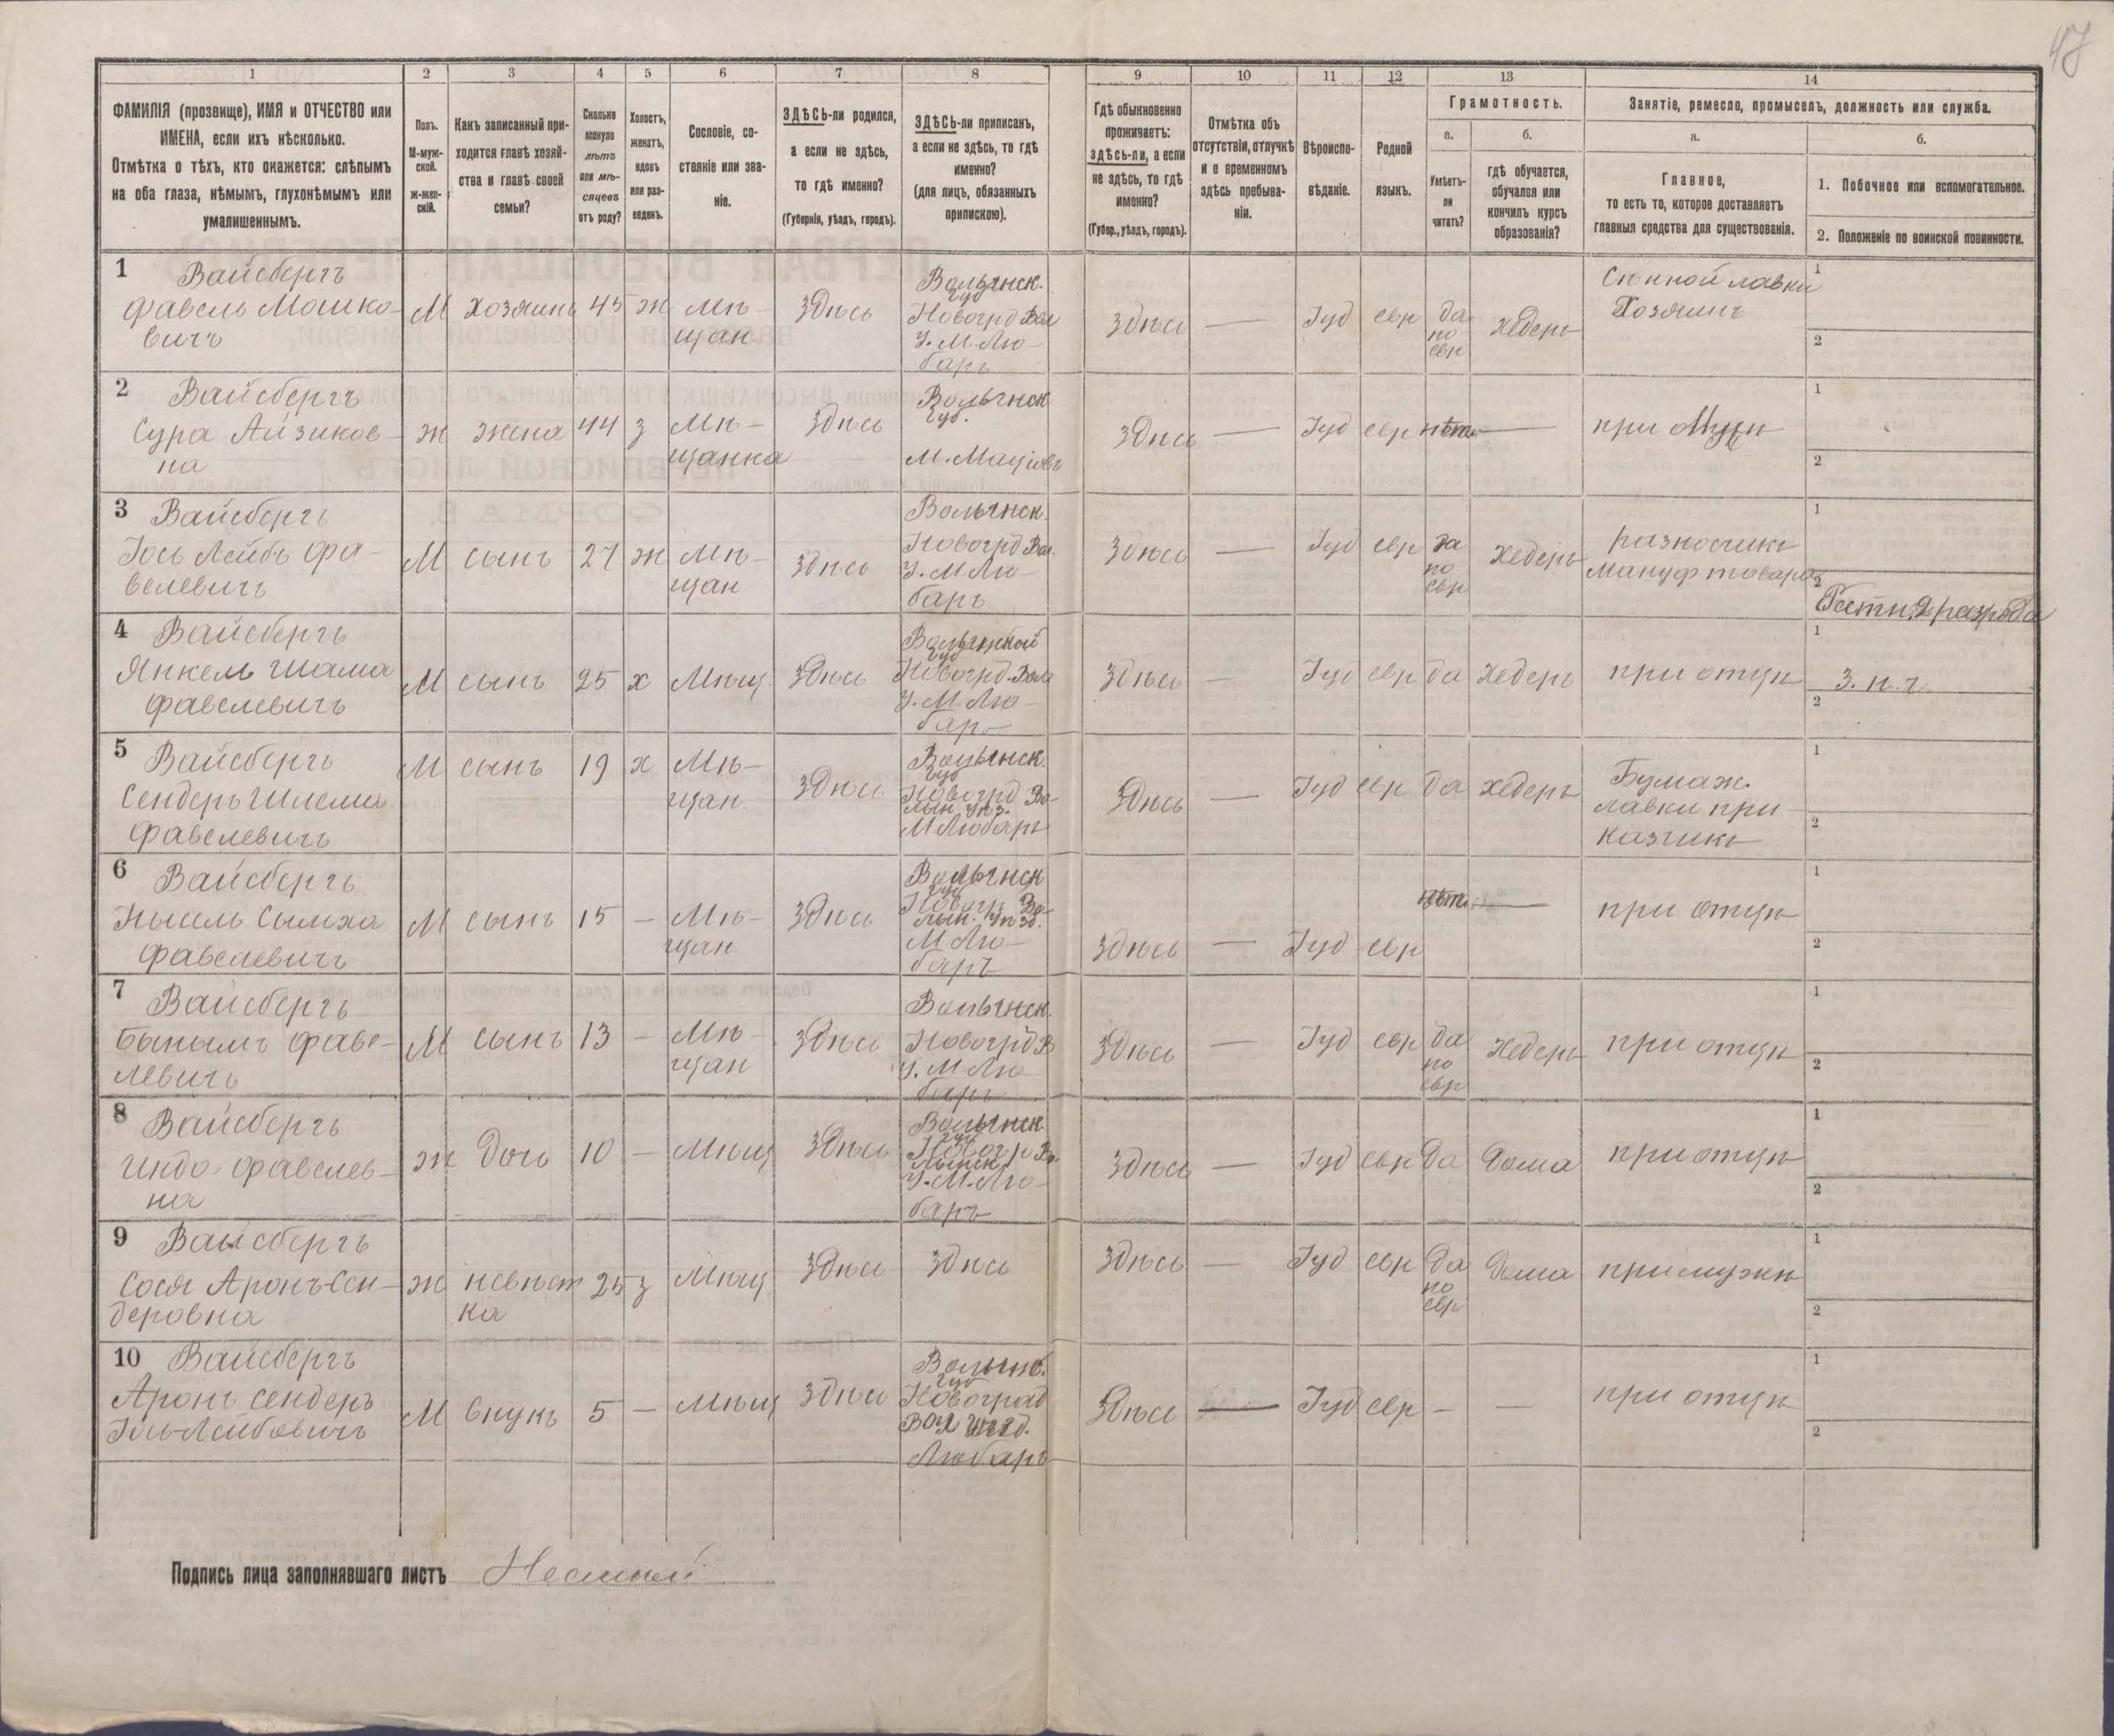 47
1 2 3 4 5 6 7 8 9 10 11 12 13 14
ФАМИЛІЯ (прозвище), ИМЯ и ОТЧЕСТВО или
ИМЕНА, если ихъ нѣсколько.
Отмѣтка о тѣхъ, кто окажется: слѣпымъ
на оба глаза, нѣмымъ, глухонѣмымъ или
умалишеннымъ.
Полъ.
М-муж-
ской.
ж-жен-
скій.
Какъ записанный при-
ходится главѣ хозяй-
ства и главѣ своей
семьи?
Сколько
минуло
лѣтъ
или мѣ-
сяцевъ
отъ роду?
Холостъ,
женатъ,
вдовъ
или раз-
веденъ.
Сословіе, со-
стояніе или зва-
ніе.
ЗДѢСЬ-ли родился,
а если не здѣсь,
то гдѣ именно?
(Губернія, уѣздъ, городъ).
ЗДѢСЬ-ли приписанъ,
а если не здѣсь, то гдѣ
именно?
(для лицъ, обязанныхъ
припискою).
Гдѣ обыкновенно
проживаетъ:
здѣсь-ли, а если
не здѣсь, то гдѣ
именно?
(Губер., уѣздъ, городъ).
Отмѣтка объ
отсутствіи, отлучкѣ
и о временномъ
здѣсь пребыва-
ніи.
Вѣроиспо-
вѣданіе.
Родной
языкъ.
Грамотность.
а.
Умѣетъ-
ли
читать?
б.
гдѣ обучается,
обучался или
кончилъ курсъ
образованія?
Занятіе, ремесло, промыселъ, должность или служба.
а.
Главное,
то есть то, которое доставляетъ
главныя средства для существованія.
б.
1. Побочное или вспомогательное.
2. Положеніе по воинской повинности.
1 Вайсбергъ
Фавель Мошко-
вичъ
М
Хозяинъ
45
ж
Мѣ-
щан
Здѣсь
Волынск.
губ
Новогрд Вол
У. М. Лю-
баръ
Здѣсь
—
Іуд
евр
да
по
евр
Хедеръ
Сѣнной лавки
Хозяинъ
1
2
2 Вайсбергъ
Сура Айзиков-
на
ж
жена
44
з
Мѣ-
щанка
Здѣсь
Волынск
губ.
М. Маціовъ
Здѣсь
—
Іуд
евр
нѣтъ
—
при мужѣ
1
2
3 Вайсбергъ
Іось Лейбъ Фа-
велевичъ
М
сынъ
27
ж
Мѣ-
щан
Здѣсь
Волынск.
Новогрд Вол.
У. М Лю-
баръ
Здѣсь
—
Іуд
евр
да
по
евр
Хедеръ
разносчикъ
мануф товара
1
2
Ратн. 2 разряда
4 Вайсбергъ
Янкель Шама
Фавелевичъ
М
сынъ
25
х
Мѣщ.
Здѣсь
Волынской
губ
Новогрд. Вол
У. М. Лю-
баръ
Здѣсь
—
Іуд
евр
да
Хедеръ
при отцѣ
1
З. п. г.
2
5 Вайсбергъ
Сендеръ Шлема
Фавелевичъ
М
сынъ
19
х
Мѣ-
щан
Здѣсь
Волынск.
губ
Новогрд Во-
лын уѣз.
М Любаръ
Здѣсь
—
Іуд
евр
да
Хедеръ
Бумаж.
лавки при-
казчикъ
1
2
6 Вайсбергъ
Нысель Сымха
Фавелевичъ
М
сынъ
15
—
Мѣ-
щан
Здѣсь
Волынск
губ
Новогр Во-
лын. уѣзд.
М Лю-
баръ
Здѣсь
—
Іуд
евр
нѣтъ
—
при отцѣ
1
2
7 Вайсбергъ
Бынымъ Фаве-
левичъ
М
сынъ
13
—
Мѣ-
щан
Здѣсь
Волынск.
Новогрд В
У. М Лю-
баръ
Здѣсь
—
Іуд
евр
да
по
евр
Хедеръ
при отцѣ
1
2
8 Вайсбергъ
Индо Фавелев-
на
ж
Дочь
10
—
Мѣщ
Здѣсь
Волынск
губ
Новогр Во-
лынск
У. М. Лю-
баръ
Здѣсь
—
Іуд
евр
да
дома
при отцѣ
1
2
9 Вайсбергъ
Сося Аронъ-Сен-
деровна
ж
невѣст
ка
25
з
Мѣщ
Здѣсь
Здѣсь
Здѣсь
—
Іуд
евр
да
по
евр
дома
при мужѣ
1
2
10 Вайсбергъ
Аронъ Сендеръ
Іось-Лейбовичъ
М
Внукъ
5
—
Мѣщ
Здѣсь
Волынс.
губ
Новоград
Вол уѣзд.
Любаръ
Здѣсь
—
Іуд
евр
—
—
при отцѣ
1
2
Подпись лица заполнявшаго листъ